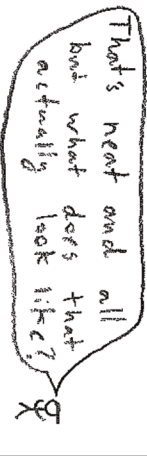 That's neat and all
but what does that
actually look like?